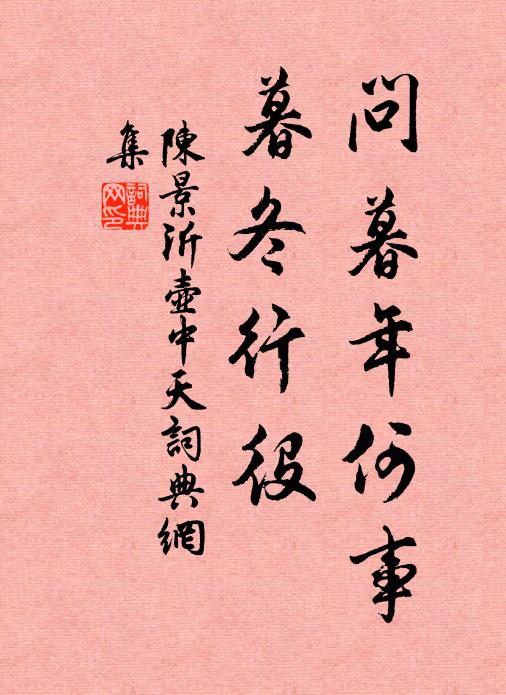 問暮年何事
暮冬行役
陳景沂壺中天詞典網
集
詞典
网印